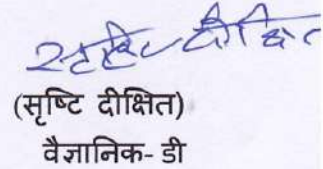 सृष्टि दीक्षित
(सृष्टि दीक्षित)
वैज्ञानिक- डी